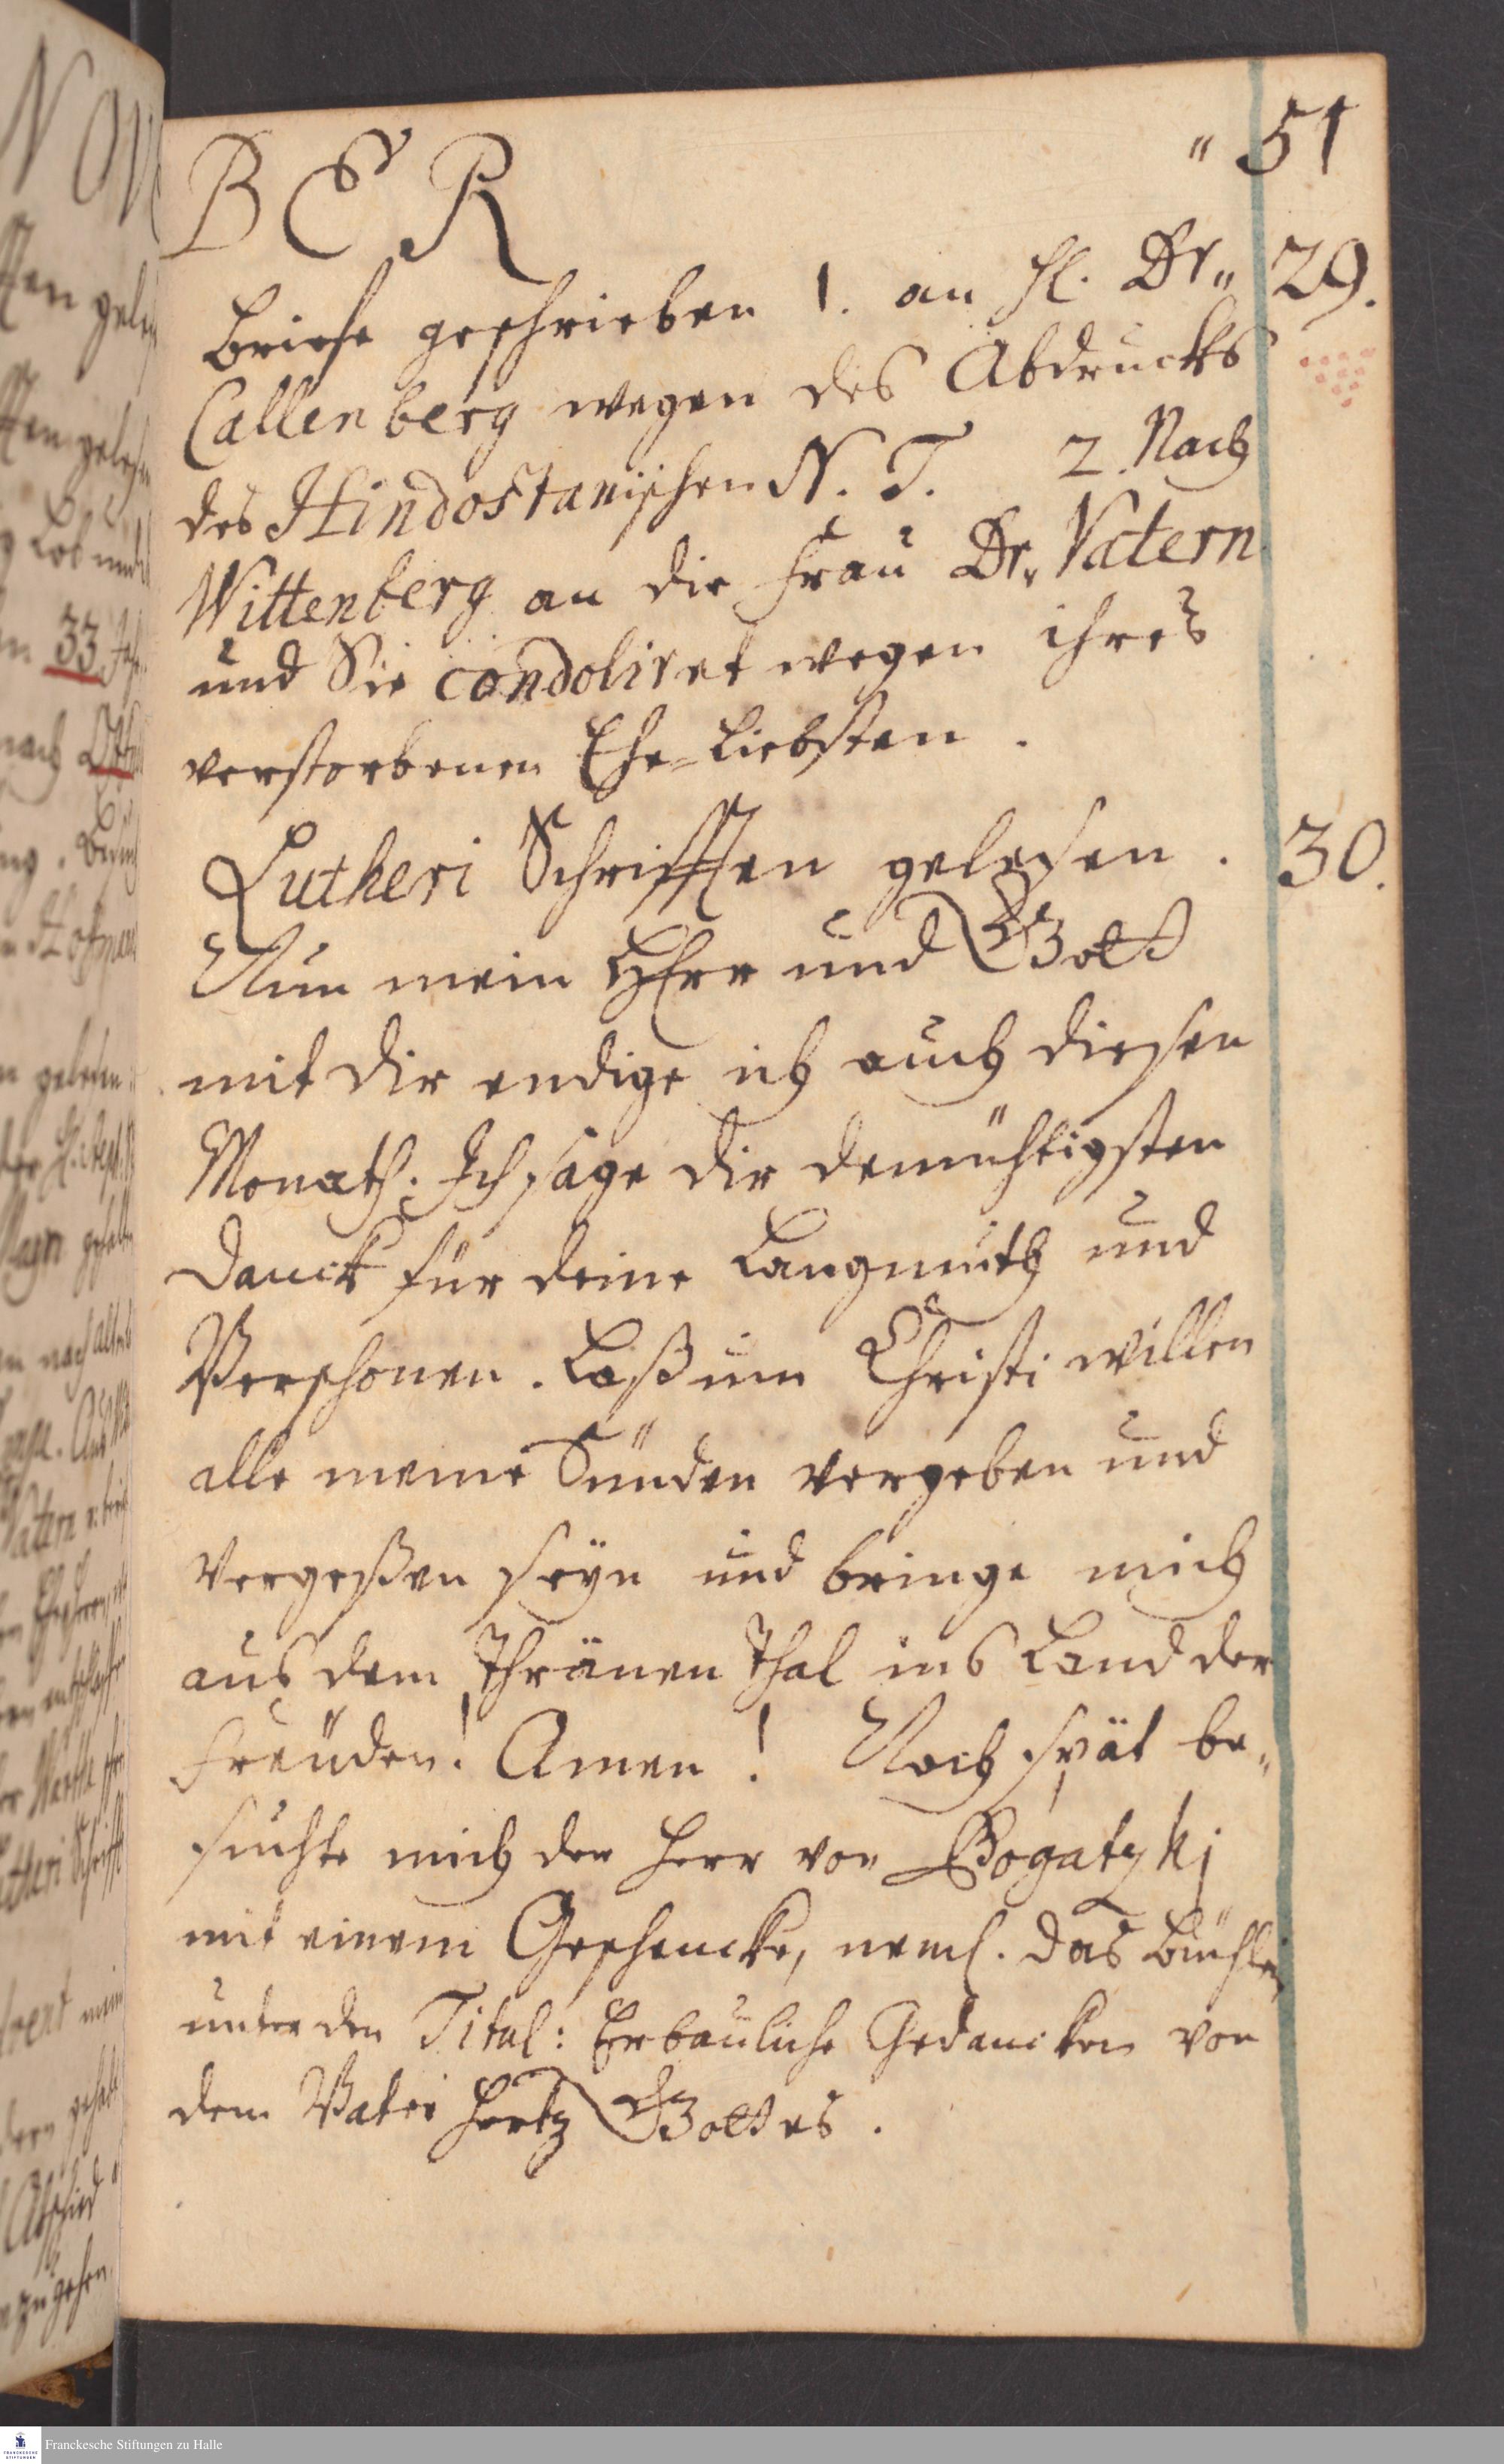 BER
" 51
Briefe geschrieben 1. an H. Dr. 29.
Callenberg wegen des Abdrucks
des Hindostanischen N. T. 2. Nach
Wittenberg an die Frau Dr. Vatern
und Sie condoliret wegen ihres
verstorbenen Ehe-Liebsten.
Lutheri Schrifften gelesen. 30.
Nun mein HErr und GOtt
mit dir endige ich auch diesen
Monath. Ich sage dir demüthigsten
Danck für deine Langmuth und
Verschonen. Laß um Christi willen
alle meine Sünden vergeben und
vergeßen seyn und bringe mich
aus dem Thränen Thal ins Land der
Freüden! Amen! Noch spät be-
suchte mich der Herr von Bogatzki
mit einem Geschencke, neml. das Büchlein
unter den Titul: Erbauliche Gedancken von
dem Vater Hertz GOttes.
Franckesche Stiftungen zu Halle